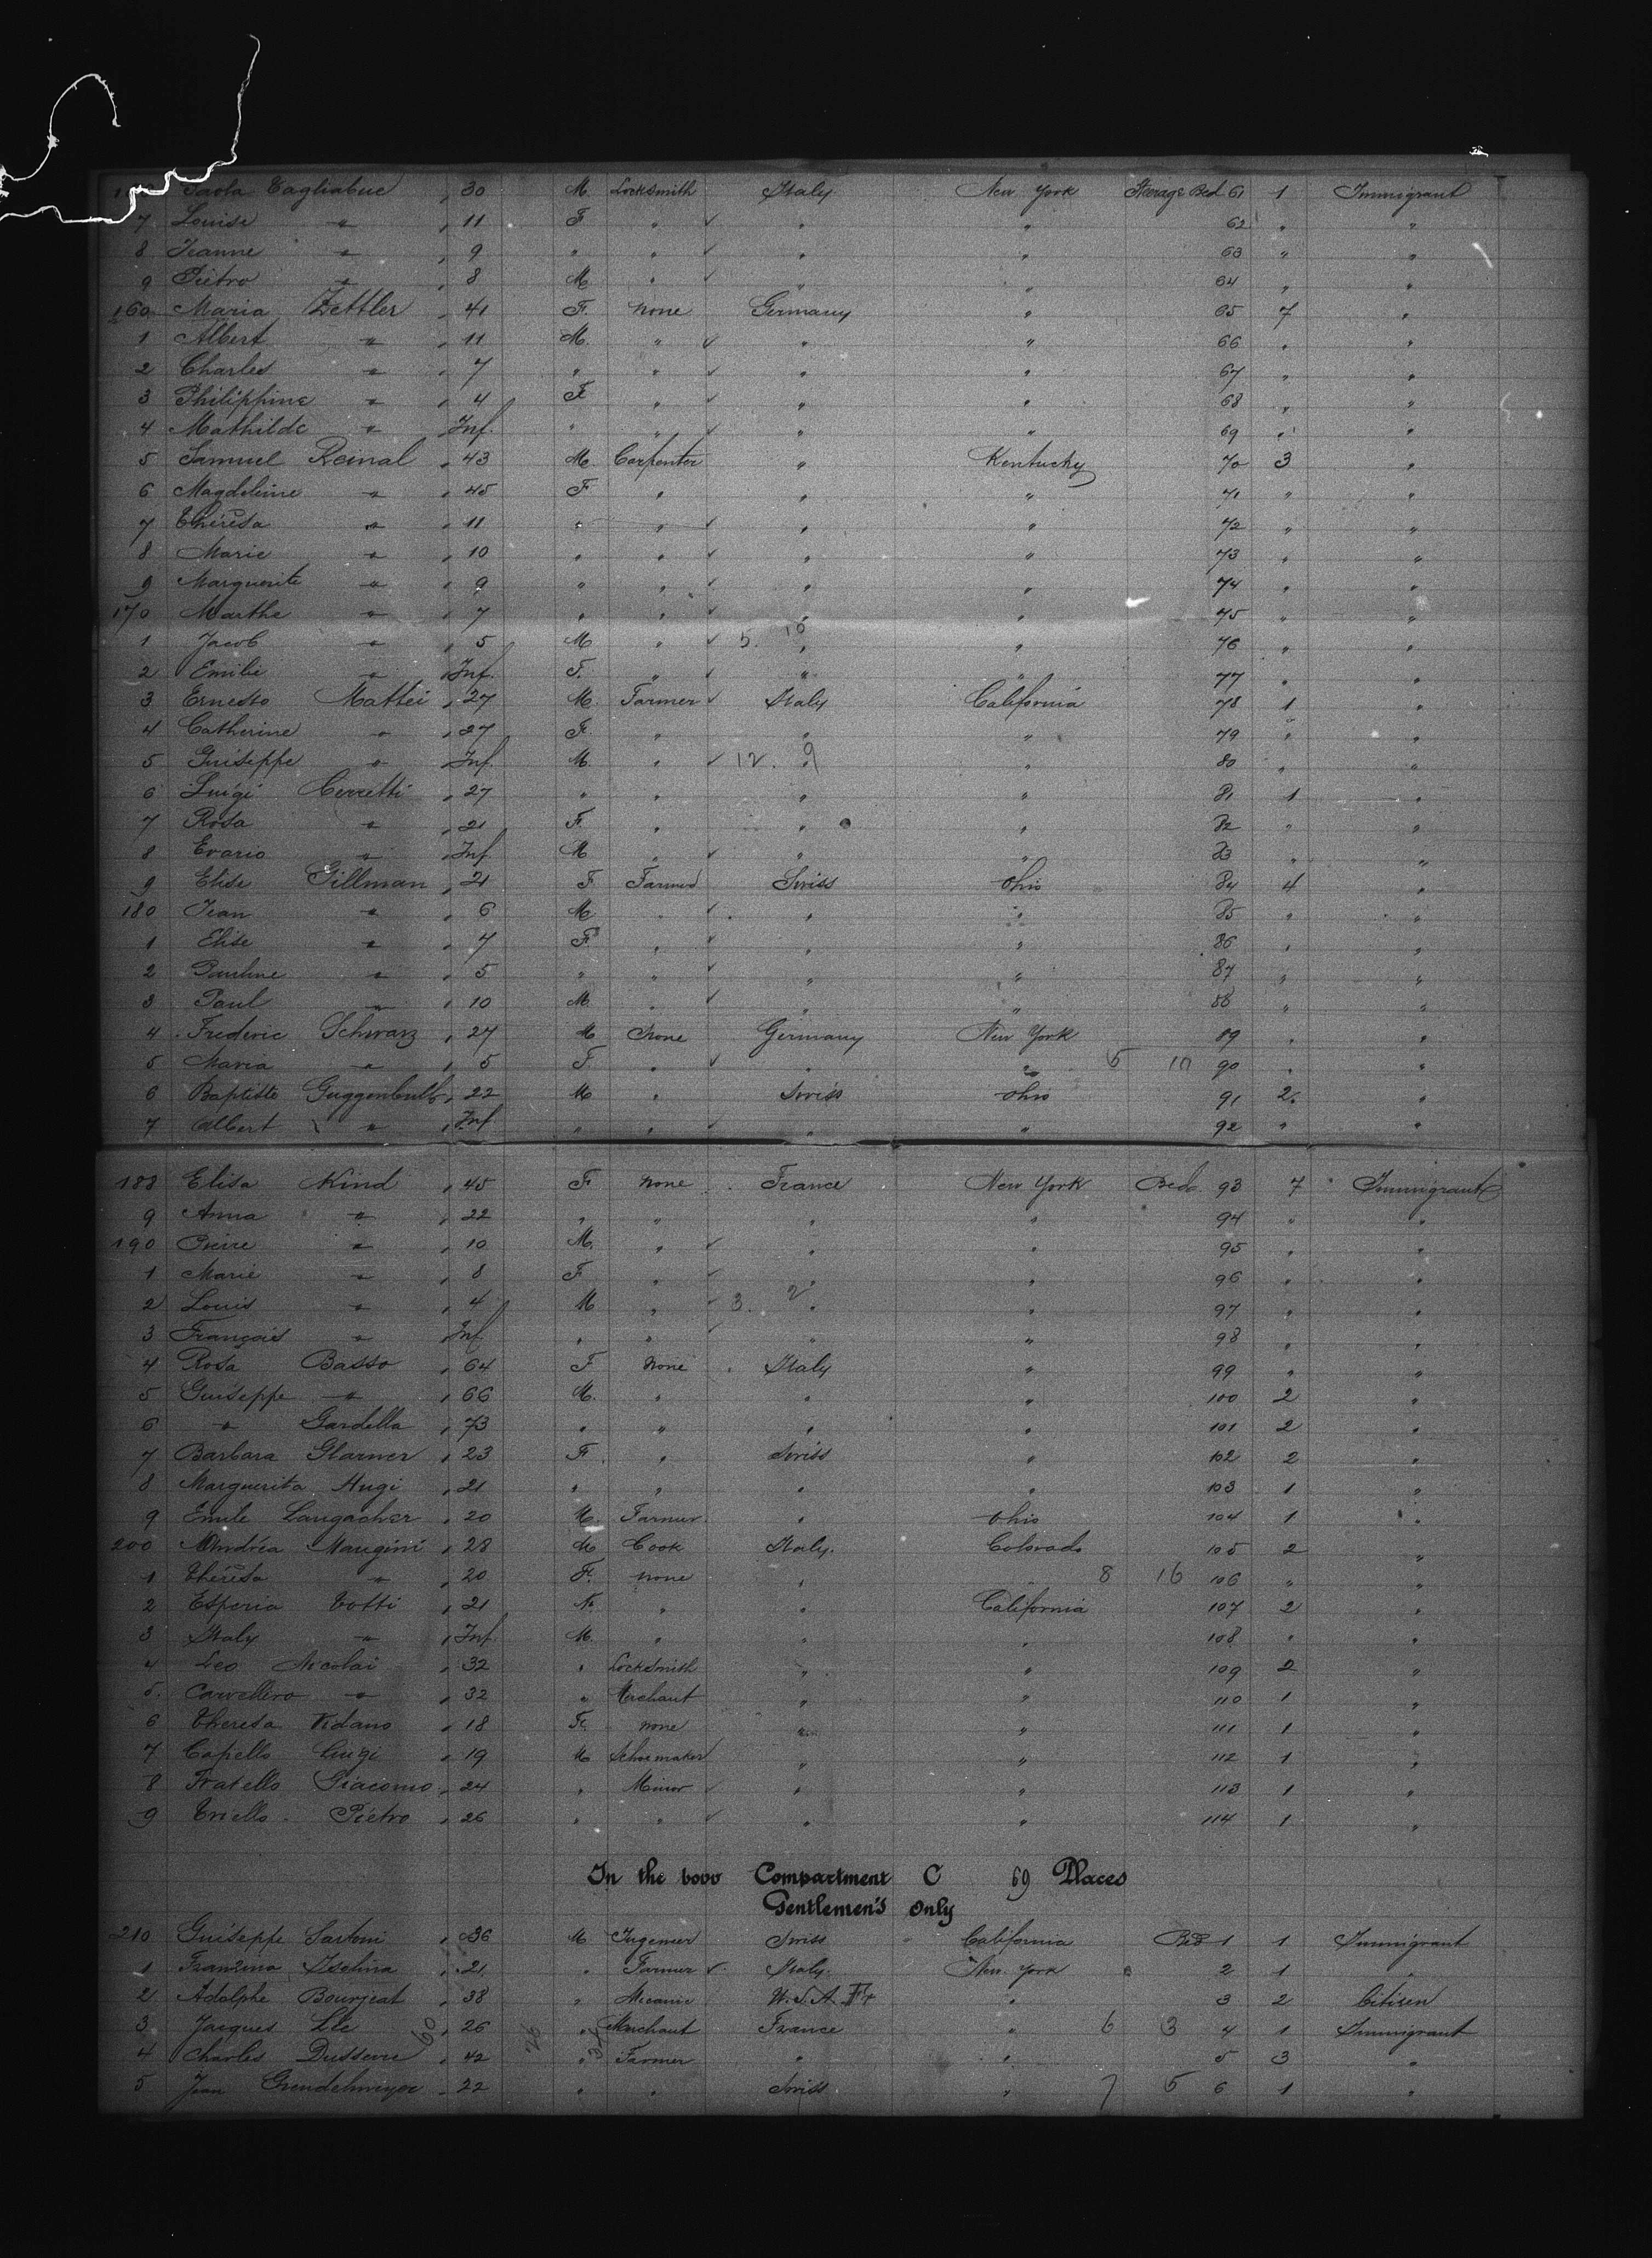 Paola Tagliabue " 30 M Locksmith Italy New York Steerage Bed 61 1 Immigrant
7 Louise " " 11 F " " " 62 " "
8 Jeanne " " 9 " " " " 63 " "
9 Pietro " " 8 M " " " 64 " "
160 Maria Zettler " 41 F. None Germany " 65 7 "
1 Albert " " 11 M. " " " 66 " "
2 Charles " " 7 " " " " 67 " "
3 Philippine " " 4 F " " " 68 " "
4 Mathilde " Inf. " " " " 69 " "
5 Samuel Reinal " 43 M. Carpenter " Kentucky 70 3 "
6 Magdeleine " " 45 F " " " 71 " "
7 Théresa " " 11 " " " " 72 " "
8 Marie " " 10 " " " " 73 " "
9 Marguerite " " 9 " " " " 74 " "
170 Marthe " " 7 " " " " 75 " "
1 Jacob " " 5 M " 5. 10 " " 76 " "
2 Emilie " " Inf. F. " " " 77 " "
3 Ernesto Mattei " 27 M Farmer Italy California 78 1 "
4 Catherine " " 27 F. " " " 79 " "
5 Guiseppe " " Inf. M. " 12. 9 " " 80 " "
6 Luigi Cerretti " 27 " " " " 81 1 "
7 Rosa " " 21 F. " " " 82 " "
8 Evario " " Inf M " " " 83 " "
9 Elise Gillman " 21 F Farmer Swiss Ohio 84 4 "
180 Jean " " 6 M " " " 85 " "
1 Elise " " 7 F " " " 86 " "
2 Pauline " " 5 " " " " 87 " "
3 Paul " " 10 M. " " " 88 " "
4 Frederic Schwarz " 27 M None Germany New York 89 " "
5 Maria " " 5 F. " " " 5 10 90 " "
6 Baptiste Guggenbulh " 22 M " Swiss Ohio 91 2. "
7 Albert " " Inf " " " " 92 " "
188 Elisa Kind " 45 F None France New York Beds 93 7 Immigrant
9 Anna " " 22 " " " " 94 " "
190 Pierre " " 10 M. " " " 95 " "
1 Marie " " 8 F " " " 96 " "
2 Louis " " 4 M " 3. 2 " " 97 " "
3 François " Inf " " " " 98 " "
4 Rosa Basso " 64 F None Italy " 99 " "
5 Guiseppe " " 66 M. " " " 100 2 "
6 " Gardella " 73 " " " " 101 2 "
7 Barbara Glarner " 23 F " Swiss " 102 2 "
8 Marguerita Hugi " 21 " " " " 103 1 "
9 Emile Langacher " 20 M. Farmer " Ohio 104 1 "
200 Andréa Mangini " 28 M Cook Italy. Colorado 105 2 "
1 Théresa " " 20 F. none " 8 16 106 " "
2 Esperia Totti " 21 F. " " California 107 2 "
3 Italy " " Inf M. " " " 108 " "
4 Leo Nicolai " 32 " Locksmith " " 109 2 "
5. " " 32 " Merchant " " 110 1 "
6 Theresa Vidano " 18 F. none " " 111 1 "
7 Capello Luigi " 19 M Schoemaker " " 112 1 "
8 Fratello Giacomo " 24 " Minor " " 113 1 "
9 Pietro " 26 " " " " 114 1 "
In the bow Compartment C 69 Places
Gentlemen's only
210 Guiseppe Sartoni " 36 M Ingenier Swiss California Bed 1 1 Immigrant
1 Iselina " 21 " Farmer Italy. New York 2 1 "
2 Adolphe Bourjeat " 38 " Mecanic U.S.A. " 3 2 Citisen
3 Jacques " 26 " Merchant France " 6 3 4 1 Immigrant
4 Charles 60 " 42 " Farmer " " 5 3 "
5 Jean Grendelmeyer " 22 " " Swiss " 7 5 6 1 "